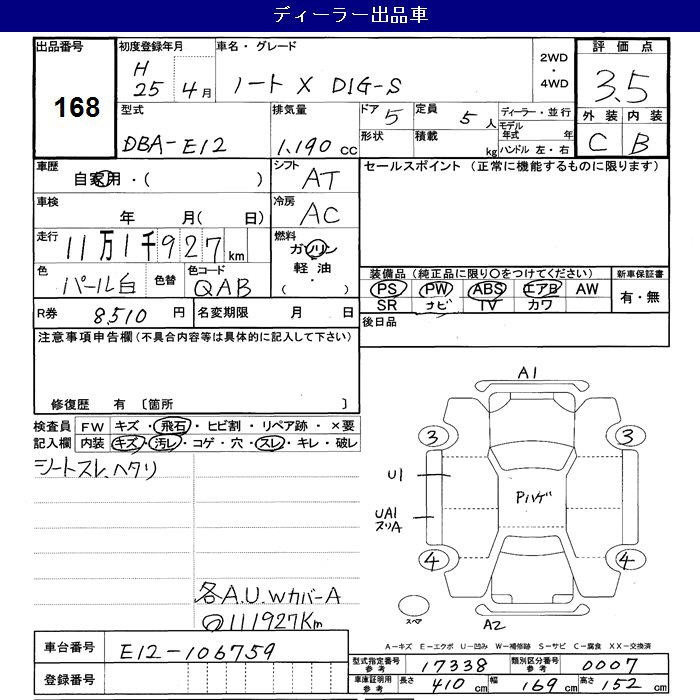 ディーラー出品車
出品番号 168
初度登録年月 H 25 4月
車名・グレード ノート X DIG-S
2WD・4WD
評価点 3.5
外装 C 内装 B
型式 DBA-E12
排気量 1,190 cc
ドア 5 形状
定員 5人 積載 kg
ディーラー・並行
モデル年式 年
ハンドル 左・右
車歴 自家用・( )
シフト AT
セールスポイント (正常に機能するものに限ります)
車検 年 月( 日)
冷房 AC
走行 11万1千927km
燃料 ガソリン 軽油・( )
色 パール白 色替 色コード QAB
装備品(純正品に限り○をつけてください) 新車保証書
PS PW ABS エアB AW 有・無
SR ナビ TV カワ
R券 8510円 名変期限 月 日
後日品
注意事項申告欄(不具合内容等は具体的に記入して下さい)
修復歴 有 〔箇所 〕
検査員記入欄 FW キズ・飛石・ヒビ割・リペア跡・×要
内装 キズ・汚レ・コゲ・穴・スレ・キレ・破レ
シートスレ、ヘタリ
A1
3 3
U1
Pハゲ
UA1
スリA
4 4
スペア
A2
各A.U.WカバーA
111927Km
A-キズ E-エクボ U-凹み W-補修跡 S-サビ C-腐食 XX-交換済
車台番号 E12-106759
型式指定番号参考 17338 類別区分番号参考 0007
登録番号
車庫証明用参考 長さ 410cm 幅 169cm 高さ 152cm